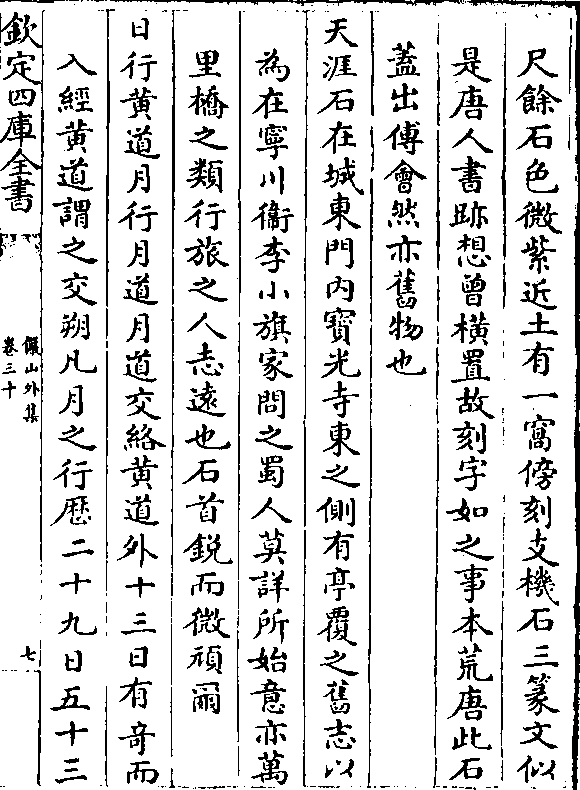 尺餘石色微紫近土有一窩傍刻支機石三篆文似
是唐人書跡想曾橫置故刻字如之事本荒唐此石
蓋出傅會然亦舊物也
天涯石在城東門內寶光寺東之側有亭覆之舊志以
為在寧川衞李小旗家問之蜀人莫詳所始意亦萬
里橋之類行旅之人志遠也石首鋭而微頑爾
日行黄道月行月道月道交絡黄道外十三日有竒而
入經黄道謂之交朔凡月之行歴二十九日五十三
欽定四庫全書
儼山外集
卷三十
七